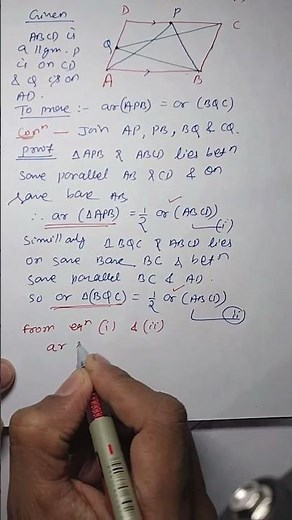 Given
ABCD is
a llgm. P
is on CD
& Q is on
AD.
D P C
Q
A B
To prove :- ar(APB) = ar (BQC)
Conⁿ — Join AP, PB, BQ & CQ.
Proof △APB & ABCD lies betⁿ
same parallel AB & CD & on
same base AB
∴ ar (△APB) = 1/2 ar (ABCD)
(i)
Similarly △BQC & ABCD lies
on same Base BC & betⁿ
same parallel BC & AD.
so ar △(BQC) = 1/2 ar (ABCD)
ii
from eqⁿ (i) & (ii)
ar